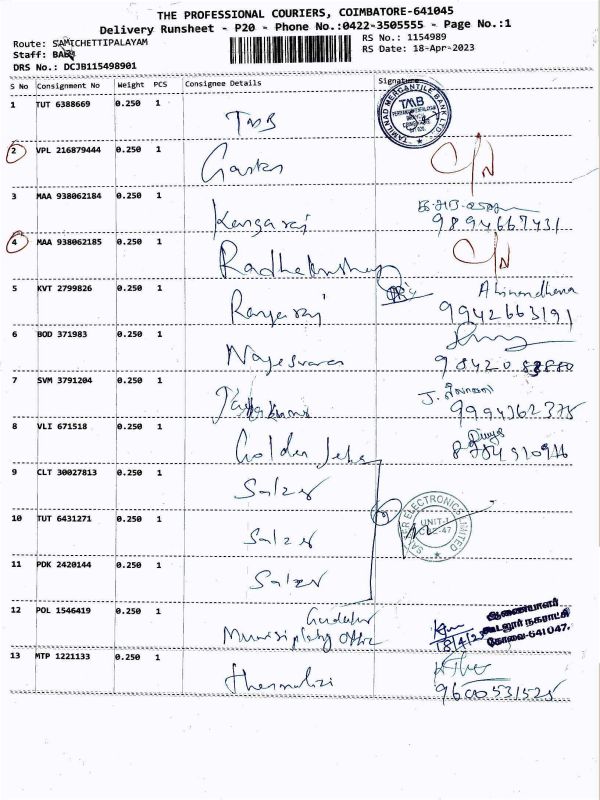 THE PROFESSIONAL COURIERS, COIMBATORE-641045
Delivery Runsheet - P20 - Phone No.:0422-3505555 - Page No.:1
Route: SAMICHETTIPALAYAM
RS No.: 1154989
Staff:
RS Date: 18-Apr-2023
DRS No.: DCJB115498901
S No Consignment No Weight PCS Consignee Details Signature
1 TUT 6388669 0.250 1 TMB
TAMILNAD MERCANTILE BANK LTD. TMB
2 VPL 216879444 0.250 1
3 MAA 938062184 0.250 1 Kangaraj
9894667431
4 MAA 938062185 0.250 1
5 KVT 2799826 0.250 1 Rangaraj
9942663191
6 BOD 371983 0.250 1 Nagesvaran
98420
7 SVM 3791204 0.250 1
9994362375
8 VLI 671518 0.250 1 Golden
Divya
9 CLT 30027813 0.250 1 Salzer
10 TUT 6431271 0.250 1 Salzer
SALZER ELECTRONICS LIMITED UNIT-1 CBE-47
11 PDK 2420144 0.250 1 Salzer
12 POL 1546419 0.250 1 Gudalur
Office
18/4/23
ஆணையாளர்
கூடலூர் நகராட்சி
கோவை-641047.
13 MTP 1221133 0.250 1
9600531525